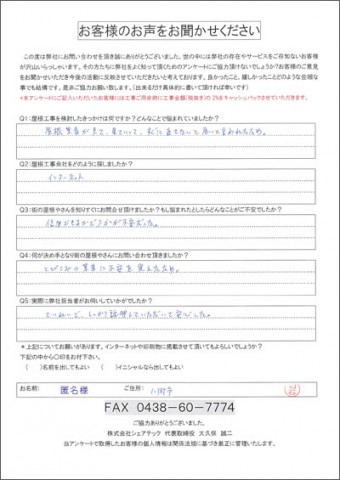 お客様のお声をお聞かせください
この度は弊社にお問い合わせを頂き誠にありがとうございました。世の中には弊社の存在やサービスをご存知ないお客様
が沢山いらっしゃいます。その方たちに弊社をよく知って頂くためのアンケートにご協力頂けないでしょうか？お客様のご意見
をお聞かせいただき今後の活動に反映させていただきたいと考えております。良かったこと、嬉しかったことどのような些細な
事でも結構です、是非ご協力お願い致します。（出来るだけ具体的に書いて頂ければ幸いです）
*本アンケートにご記入いただいたお客様には工事ご用命時に工事金額（税抜き）の2%をキャッシュバックさせていただきます。
Q1：屋根工事を検討したきっかけは何ですか？どんなことで悩まれていましたか？
屋根業者が来て、見ていって、
Q2：屋根工事会社をどのように探しましたか？
インターネット
Q3：街の屋根やさんを知りすぐにお問合せ頂けましたか？もし悩まれたとしたらどんなことがご不安でしたか？
信用できるかどうかが不安だった。
Q4：何が決め手となり街の屋根やさんにお問い合わせ頂きましたか？
とびこみの業者に不安を覚えたため。
Q5：実際に弊社担当者がお伺いしていかがでしたか？
ていねいで、しっかり説明していただいて安心した。
＊上記についてお願いがあります。インターネットや印刷物に掲載させて頂いてもよろしいでしょうか？
下記の中から〇印をお付下さい。
（　）名前を出してもよい　（　）イニシャルなら出してもよい
お名前： 匿名様 ご住所：
FAX 0438-60-7774
ご協力ありがとうございました。
株式会社シェアテック 代表取締役 大久保 誠二
当アンケートで取得したお客様の個人情報は関係法規に基づき厳正に管理いたします。